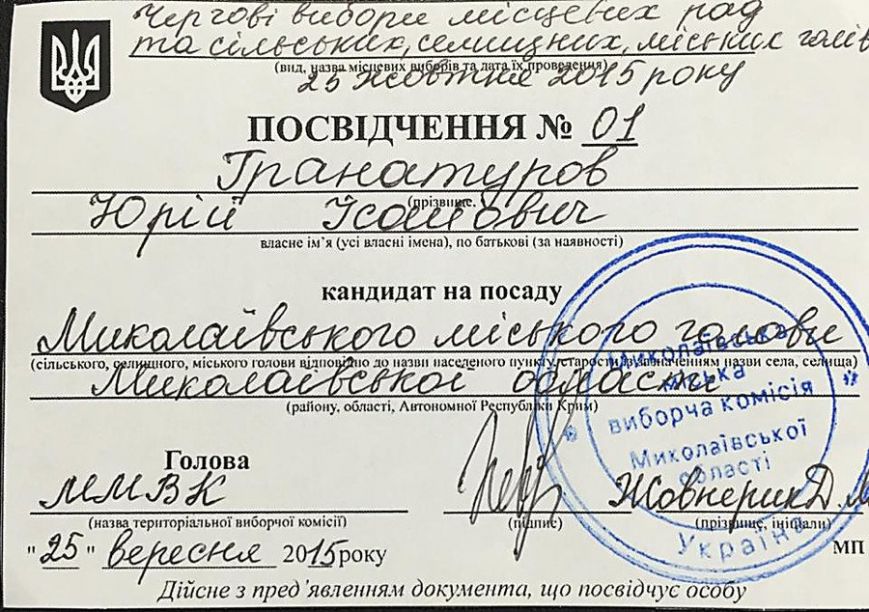 Чергові вибори місцевих рад
та сільських, селищних, міських голів
(вид, назва місцевих виборів та дата їх проведення)
25 жовтня 2015 року
ПОСВІДЧЕННЯ № 01
Гранатуров
(прізвище,
Юрій Ісайович
власне ім’я (усі власні імена), по батькові (за наявності)
кандидат на посаду
Миколаївського міського голови
(сільського, селищного, міського голови відповідно до назви населеного пункту, старости із зазначенням назви села, селища)
Миколаївської області
(району, області, Автономної Республіки Крим)
Голова
ММВК
Жовнерик Д.М
(назва територіальної виборчої комісії)
(підпис)
(прізвище, ініціали)
"25" вересня 2015 року
МП
Дійсне з пред’явленням документа, що посвідчує особу
Миколаївська
міська
виборча комісія
Миколаївської
області
Україна